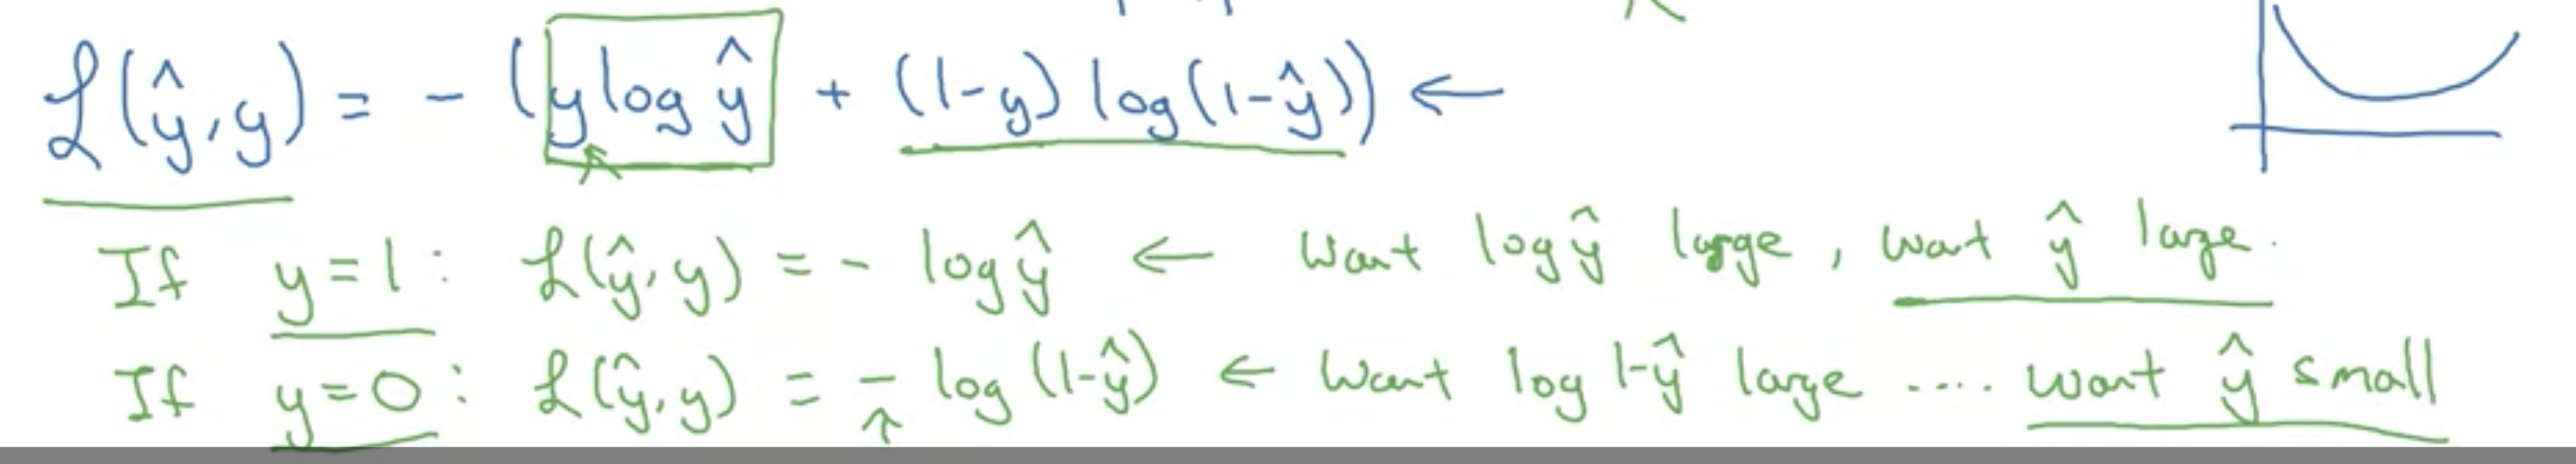 ℒ(ŷ,y) = - (y log ŷ + (1-y) log(1-ŷ)) ←
If y=1: ℒ(ŷ,y) = - log ŷ ← Want log ŷ large, want ŷ large.
If y=0: ℒ(ŷ,y) = - log (1-ŷ) ← Want log 1-ŷ large .... want ŷ small